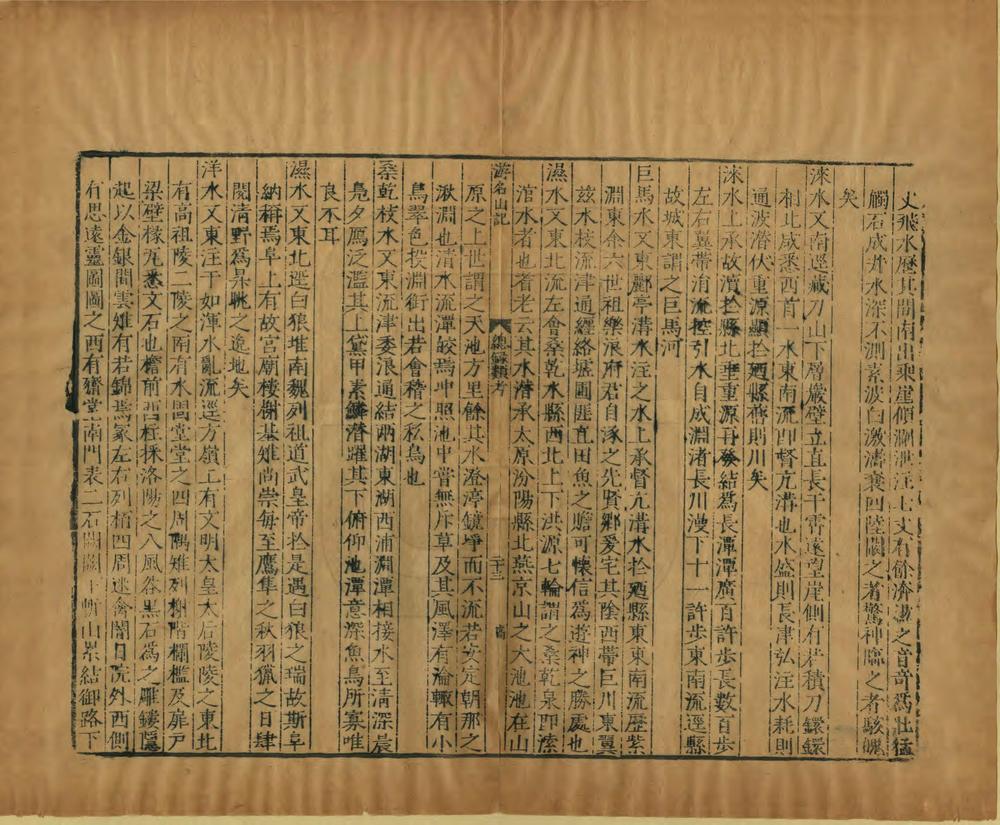 丈飛水歷其間南出乘崖傾澗泄注七丈有餘渀盪之音奇爲壯猛
觸石成井水深不測素波白激濤襄四陸闞之者驚神臨之者駭魄
矣
淶水又南逕藏刀山下層巖壁立直長干霄遠望崖側有若積刀鐶鐶
相比咸悉西首一水東南流卽督亢溝也水盛則長津弘注水耗則
通波潛伏重源顯扵遒縣舊則川矣
淶水上承故瀆扵縣北垂重源再發結爲長潭潭廣百許步長數百步
左右翼帶涓流控引水自成淵渚長川漫下十一許步東南流逕縣
故城東謂之巨馬河
巨馬水又東酈亭溝水注之水上承督亢溝水扵遒縣東東南流歷紫
淵東余六世祖樂浪府君自涿之先賢鄉爰宅其陰西帶巨川東翼
茲水枝流津通纒絡墟圃匪直田魚之贍可懐信爲遊神之勝處也
濕水又東北流左會桑乾水縣西北上下洪源七輪謂之桑乾泉卽溹
涫水者也耆老云其水潛承太原汾陽縣北燕京山之大池池在山
游名山記
總錄類考
二十三
原之上世謂之天池方里餘其水澄渟鏡淨而不流若安定朝那之
湫淵也清水流潭皎焉冲照池中嘗無斥草及其風澤有淪輙有小
鳥翠色投淵銜出若會稽之耘鳥也
桑乾枝水又東流津委浪通結兩湖東湖西浦淵潭相接水至清深晨
鳧夕鴈泛濫其上黛甲素鱗潛躍其下俯仰池潭意深魚鳥所寡唯
良木耳
濕水又東北逕白狼堆南魏列祖道武皇帝扵是遇白狼之瑞故斯阜
納稱焉阜上有故宮廟樓榭基雉尚崇每至鷹隼之秋羽獵之日肆
閱清野爲昇眺之逸地矣
洋水又東注于如渾水亂流逕方嶺上有文明太皇太后陵陵之東北
有高祖陵二陵之南有永固堂堂之四周隅雉列榭階欄檻及扉戸
梁壁椽瓦悉文石也檐前四柱採洛陽之八風谷黑石爲之雕鏤隱
起以金銀間雲雉有若錦焉冢左右列栢四周迷禽闇日院外西側
有思遠靈圖圖之西有齋堂南門表二石闕闕下斬山累結御路下